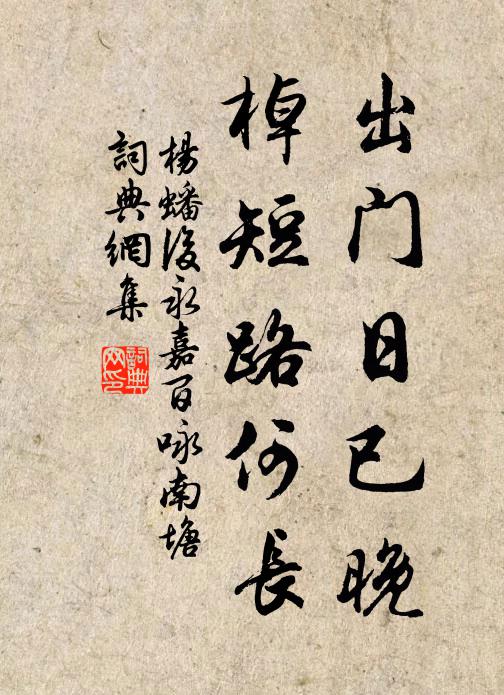 出門日已晚
棹短路何長
楊蟠後永嘉百咏南塘
詞典網集
詞典網印